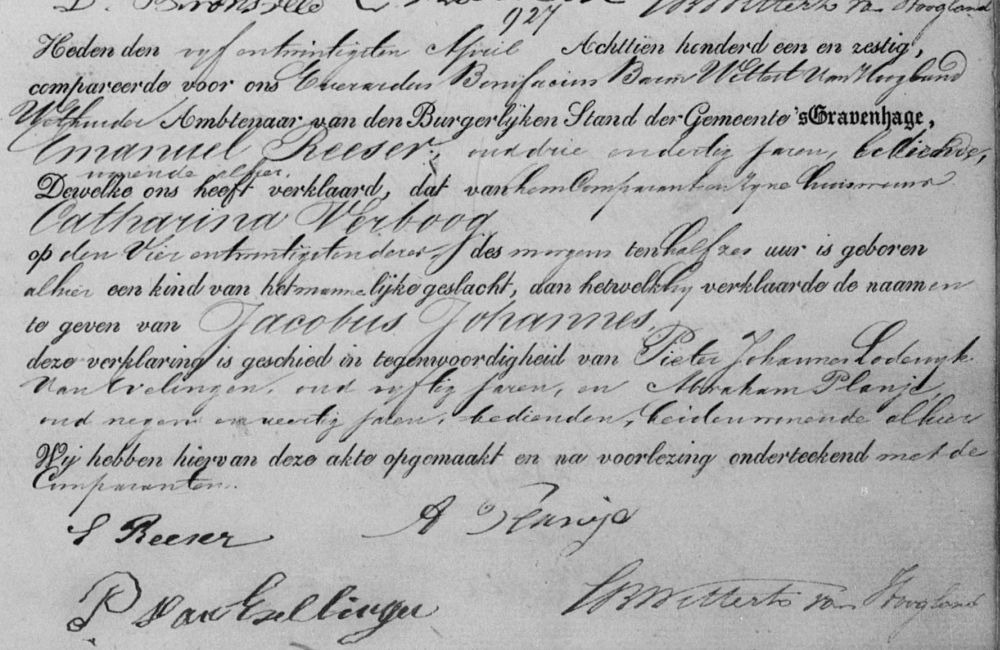 927
Heden den vyf en twintigsten April Achttien honderd een en zestig,
compareerde voor ons Everardus Bonifacius Baron Wittert Van Hoogland
Wethouder Ambtenaar van den Burgerlijken Stand der Gemeente 'sGravenhage,
Emanuel Reeser, oud drie en dertig jaren, bediende,
wonende alhier.
Dewelke ons heeft verklaard, dat van hem Comparant en zyne huisvrouw
Catharina Verboog
op den Vier en twintigsten dezer, des morgens ten half zes uur is geboren
alhier een kind van het mannelijke geslacht, aan hetwelk hy verklaarde de naamen
te geven van Jacobus Johannes,
deze verklaring is geschied in tegenwoordigheid van Pieter Johannes Lodewyk
Van Evelingen, oud vyftig jaren, en Abraham Planje,
oud negen en veertig jaren, bedienden, beiden wonende alhier
Wij hebben hiervan deze akte opgemaakt en na voorlezing onderteekend met de
Comparanten.
E Reeser A Planje
P van
EBWittert van Hoogland